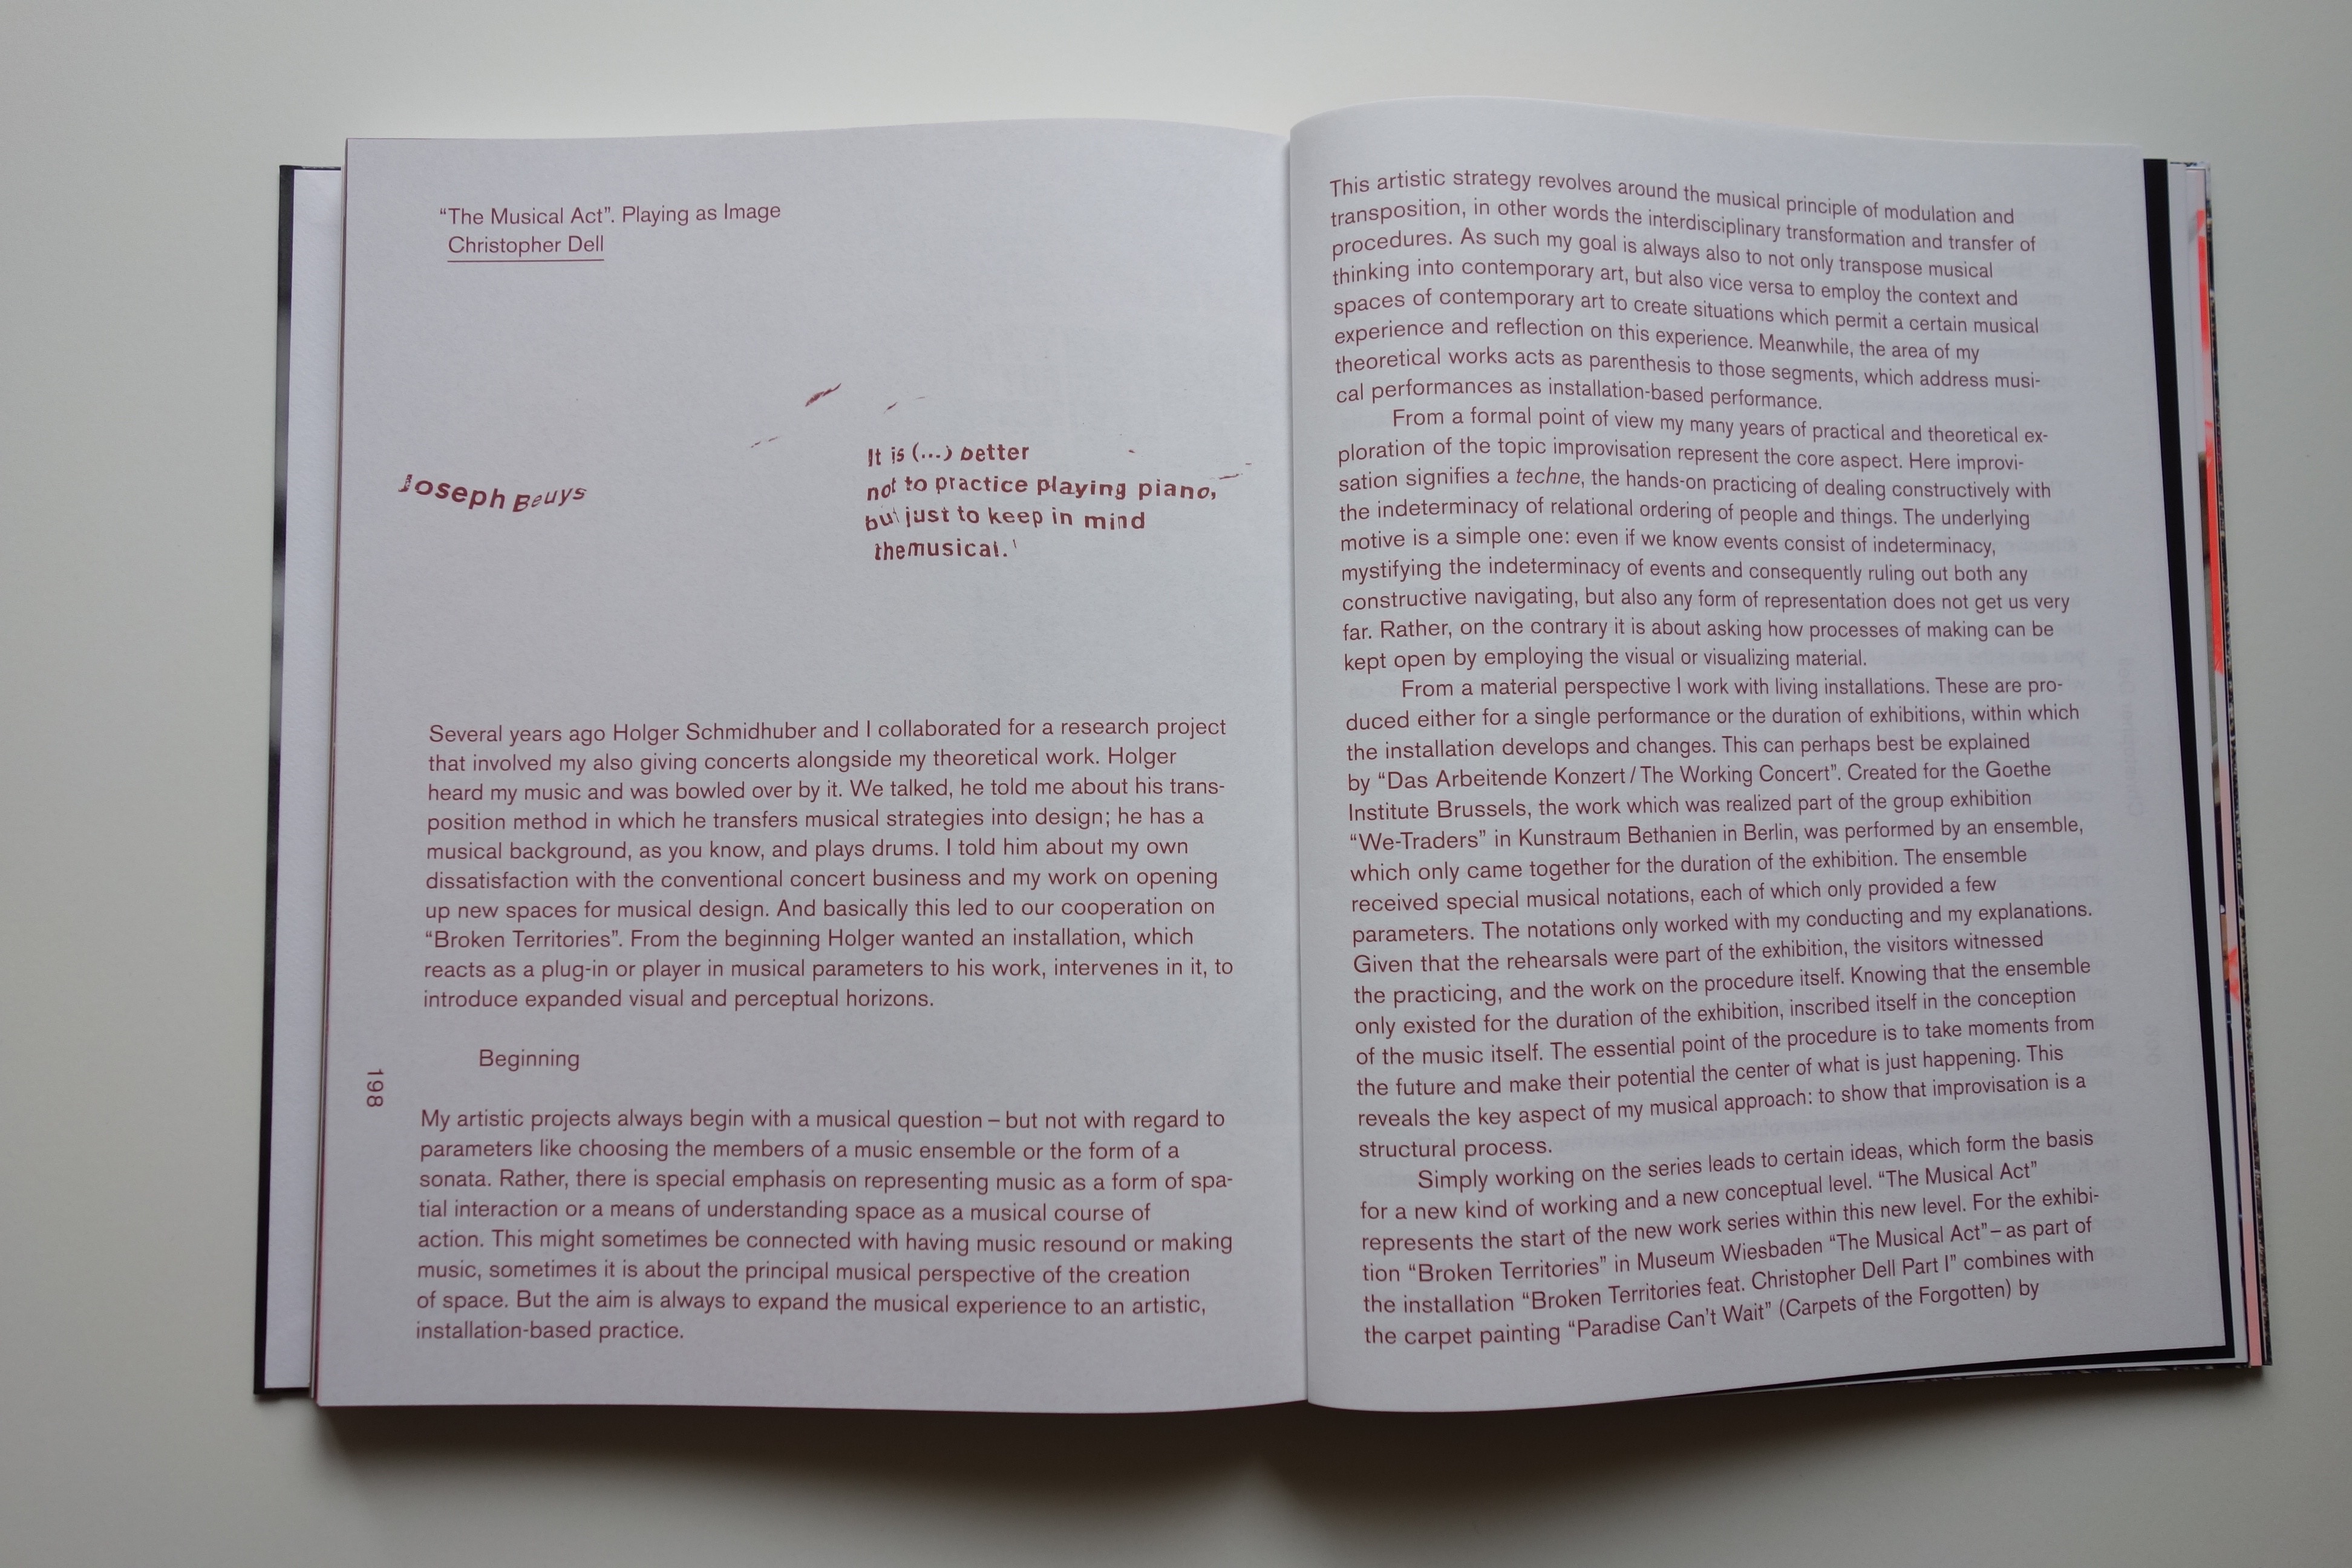 “The Musical Act”. Playing as Image
Christopher Dell
Joseph Beuys
It is (...) better
not to practice playing piano,
but just to keep in mind
themusical.¹
Several years ago Holger Schmidhuber and I collaborated for a research project
that involved my also giving concerts alongside my theoretical work. Holger
heard my music and was bowled over by it. We talked, he told me about his trans-
position method in which he transfers musical strategies into design; he has a
musical background, as you know, and plays drums. I told him about my own
dissatisfaction with the conventional concert business and my work on opening
up new spaces for musical design. And basically this led to our cooperation on
“Broken Territories”. From the beginning Holger wanted an installation, which
reacts as a plug-in or player in musical parameters to his work, intervenes in it, to
introduce expanded visual and perceptual horizons.
Beginning
198
My artistic projects always begin with a musical question – but not with regard to
parameters like choosing the members of a music ensemble or the form of a
sonata. Rather, there is special emphasis on representing music as a form of spa-
tial interaction or a means of understanding space as a musical course of
action. This might sometimes be connected with having music resound or making
music, sometimes it is about the principal musical perspective of the creation
of space. But the aim is always to expand the musical experience to an artistic,
installation-based practice.
This artistic strategy revolves around the musical principle of modulation and
transposition, in other words the interdisciplinary transformation and transfer of
procedures. As such my goal is always also to not only transpose musical
thinking into contemporary art, but also vice versa to employ the context and
spaces of contemporary art to create situations which permit a certain musical
experience and reflection on this experience. Meanwhile, the area of my
theoretical works acts as parenthesis to those segments, which address musi-
cal performances as installation-based performance.
From a formal point of view my many years of practical and theoretical ex-
ploration of the topic improvisation represent the core aspect. Here improvi-
sation signifies a techne, the hands-on practicing of dealing constructively with
the indeterminacy of relational ordering of people and things. The underlying
motive is a simple one: even if we know events consist of indeterminacy,
mystifying the indeterminacy of events and consequently ruling out both any
constructive navigating, but also any form of representation does not get us very
far. Rather, on the contrary it is about asking how processes of making can be
kept open by employing the visual or visualizing material.
From a material perspective I work with living installations. These are pro-
duced either for a single performance or the duration of exhibitions, within which
the installation develops and changes. This can perhaps best be explained
by “Das Arbeitende Konzert / The Working Concert”. Created for the Goethe
Institute Brussels, the work which was realized part of the group exhibition
“We-Traders” in Kunstraum Bethanien in Berlin, was performed by an ensemble,
which only came together for the duration of the exhibition. The ensemble
received special musical notations, each of which only provided a few
parameters. The notations only worked with my conducting and my explanations.
Given that the rehearsals were part of the exhibition, the visitors witnessed
the practicing, and the work on the procedure itself. Knowing that the ensemble
only existed for the duration of the exhibition, inscribed itself in the conception
of the music itself. The essential point of the procedure is to take moments from
the future and make their potential the center of what is just happening. This
reveals the key aspect of my musical approach: to show that improvisation is a
structural process.
Simply working on the series leads to certain ideas, which form the basis
for a new kind of working and a new conceptual level. “The Musical Act”
represents the start of the new work series within this new level. For the exhibi-
tion “Broken Territories” in Museum Wiesbaden “The Musical Act” – as part of
the installation “Broken Territories feat. Christopher Dell Part I” combines with
the carpet painting “Paradise Can’t Wait” (Carpets of the Forgotten) by